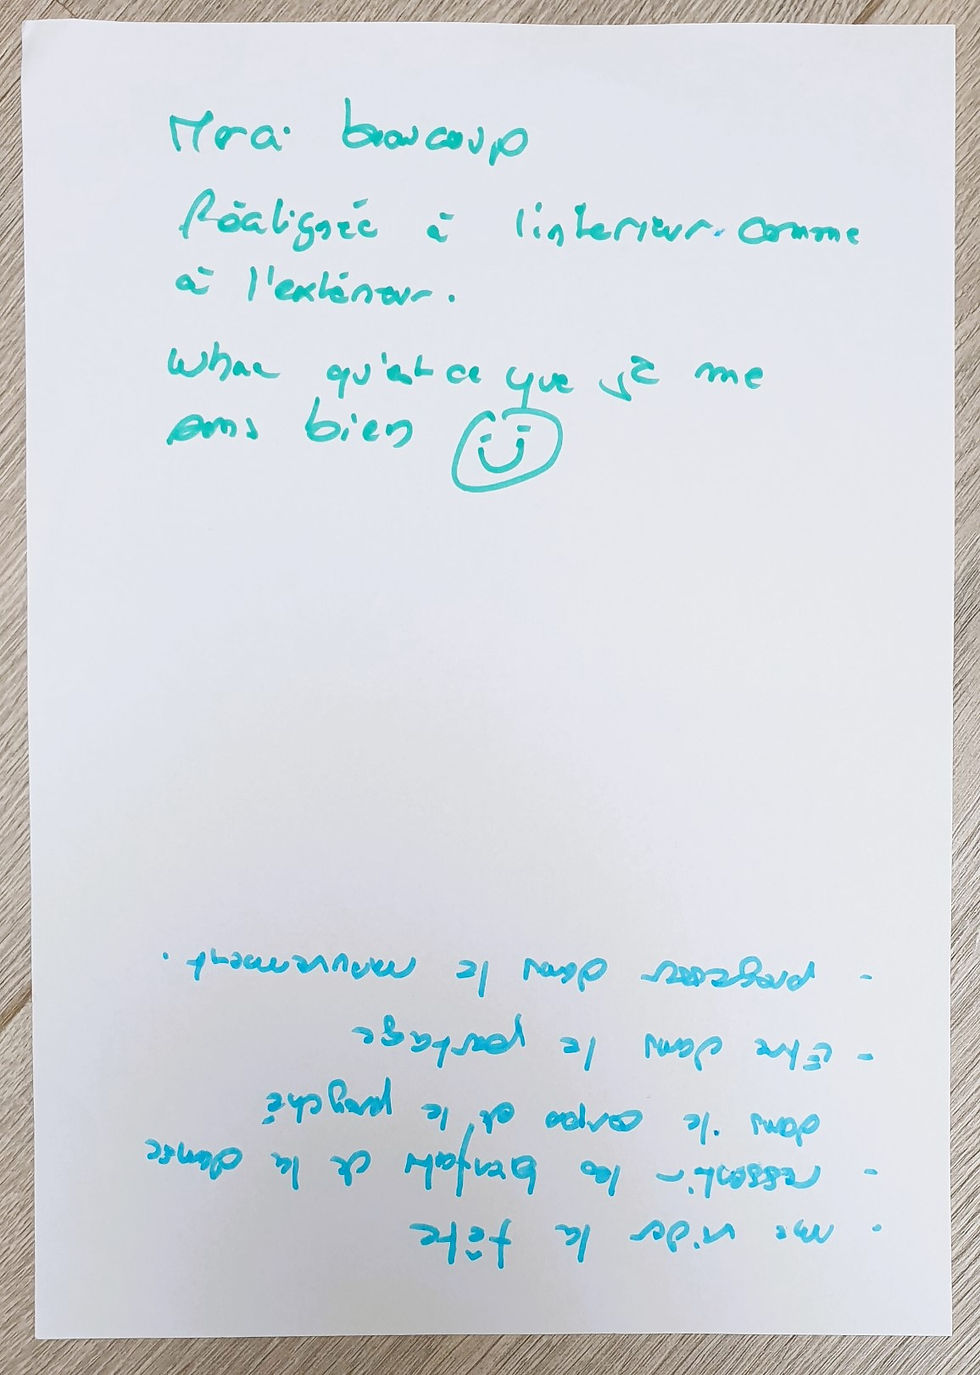 Merci beaucoup
Réalignée à l'intérieur comme
à l'extérieur.
whae qu'est ce que je me
sens bien
- me vider la tête
- ressentir les bienfaits de la danse
dans le corps et le psyché
- Être dans le partage
- progresser dans le mouvement.